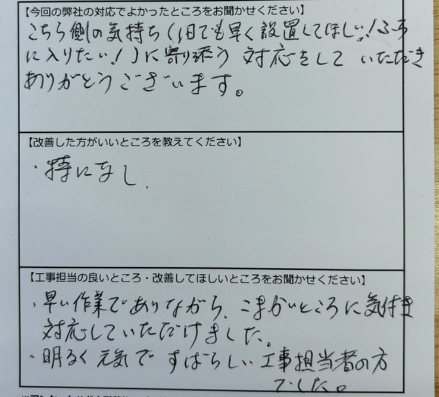 【今回の弊社の対応でよかったところをお聞かせください】
こちら側の気持ち(1日でも早く設置してほしい!ふろ
に入りたい!)に寄り添う対応をしていただき
ありがとうございます。
【改善した方がいいところを教えてください】
・特になし.
【工事担当の良いところ・改善してほしいところをお聞かせください】
・早い作業でありながら、こまかいところに気付き
対応していただけました。
・明るく元気ですばらしい工事担当者の方
でした。